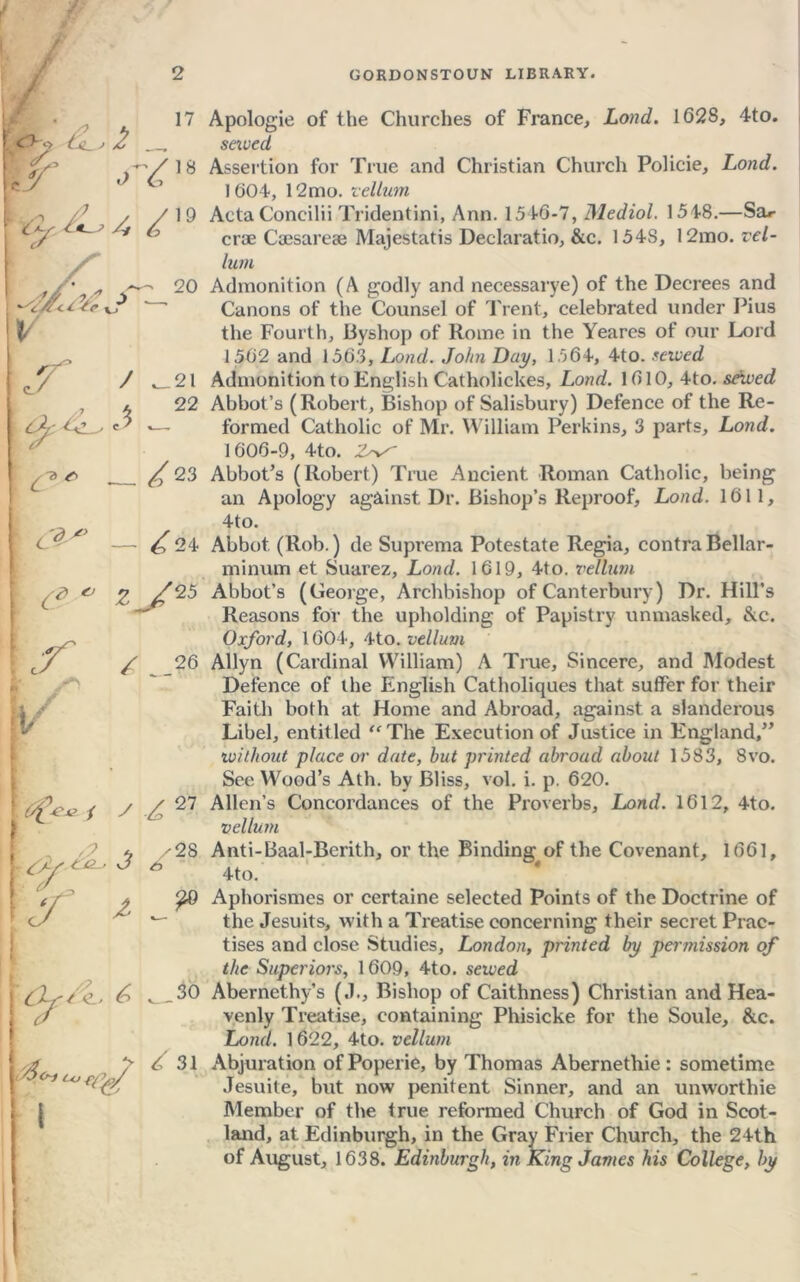 2 GORDONSTOUN LIBRARY.
17 Apologie of the Churches of France, Lond. 1628, 4to.
sewed
18 Assertion for True and Christian Church Policie, Lond.
1604, 12mo. vellum
19 Acta Concilii Tridentini, Ann. 1546-7, Mediol. 1548.—Sa-
cræ Cæsareæ Majestatis Declaratio, &c. 1548, 12mo. vel-
lum
20 Admonition (A godly and necessarye) of the Decrees and
Canons of the Counsel of Trent, celebrated under Pius
the Fourth, Byshop of Rome in the Yeares of our Lord
1562 and 1563, Lond. John Day, 1564, 4to. sewed
21 Admonition to English Catholickes, Lond. 1610, 4to. sewed
22 Abbot's (Robert, Bishop of Salisbury) Defence of the Re-
formed Catholic of Mr. William Perkins, 3 parts, Lond.
1606-9, 4to.
23 Abbot's (Robert) True Ancient Roman Catholic, being
an Apology against Dr. Bishop's Reproof, Lond. 1611,
4to.
24 Abbot (Rob.) de Suprema Potestate Regia, contra Bellar-
minum et Suarez, Lond. 1619, 4to. vellum
25 Abbot's (George, Archbishop of Canterbury) Dr. Hill's
Reasons for the upholding of Papistry unmasked, &c.
Oxford, 1604, 4to. vellum
26 Allyn (Cardinal William) A True, Sincere, and Modest
Defence of the English Catholiques that suffer for their
Faith both at Home and Abroad, against a slanderous
Libel, entitled "The Execution of Justice in England,"
without place or date, but printed abroad about 1583, 8vo.
See Wood's Ath. by Bliss, vol. i. p. 620.
27 Allen's Concordances of the Proverbs, Lond. 1612, 4to.
vellum
28 Anti-Baal-Berith, or the Binding of the Covenant, 1661,
4to.
29 Aphorismes or certaine selected Points of the Doctrine of
the Jesuits, with a Treatise concerning their secret Prac-
tises and close Studies, London, printed by permission of
the Superiors, 1609, 4to. sewed
30 Abernethy's (J., Bishop of Caithness) Christian and Hea-
venly Treatise, containing Phisicke for the Soule, &c.
Lond. 1622, 4to. vellum
31 Abjuration of Poperie, by Thomas Abernethie : sometime
Jesuite, but now penitent Sinner, and an unworthie
Member of the true reformed Church of God in Scot-
land, at Edinburgh, in the Gray Frier Church, the 24th
of August, 1638. Edinburgh, in King James his College, by